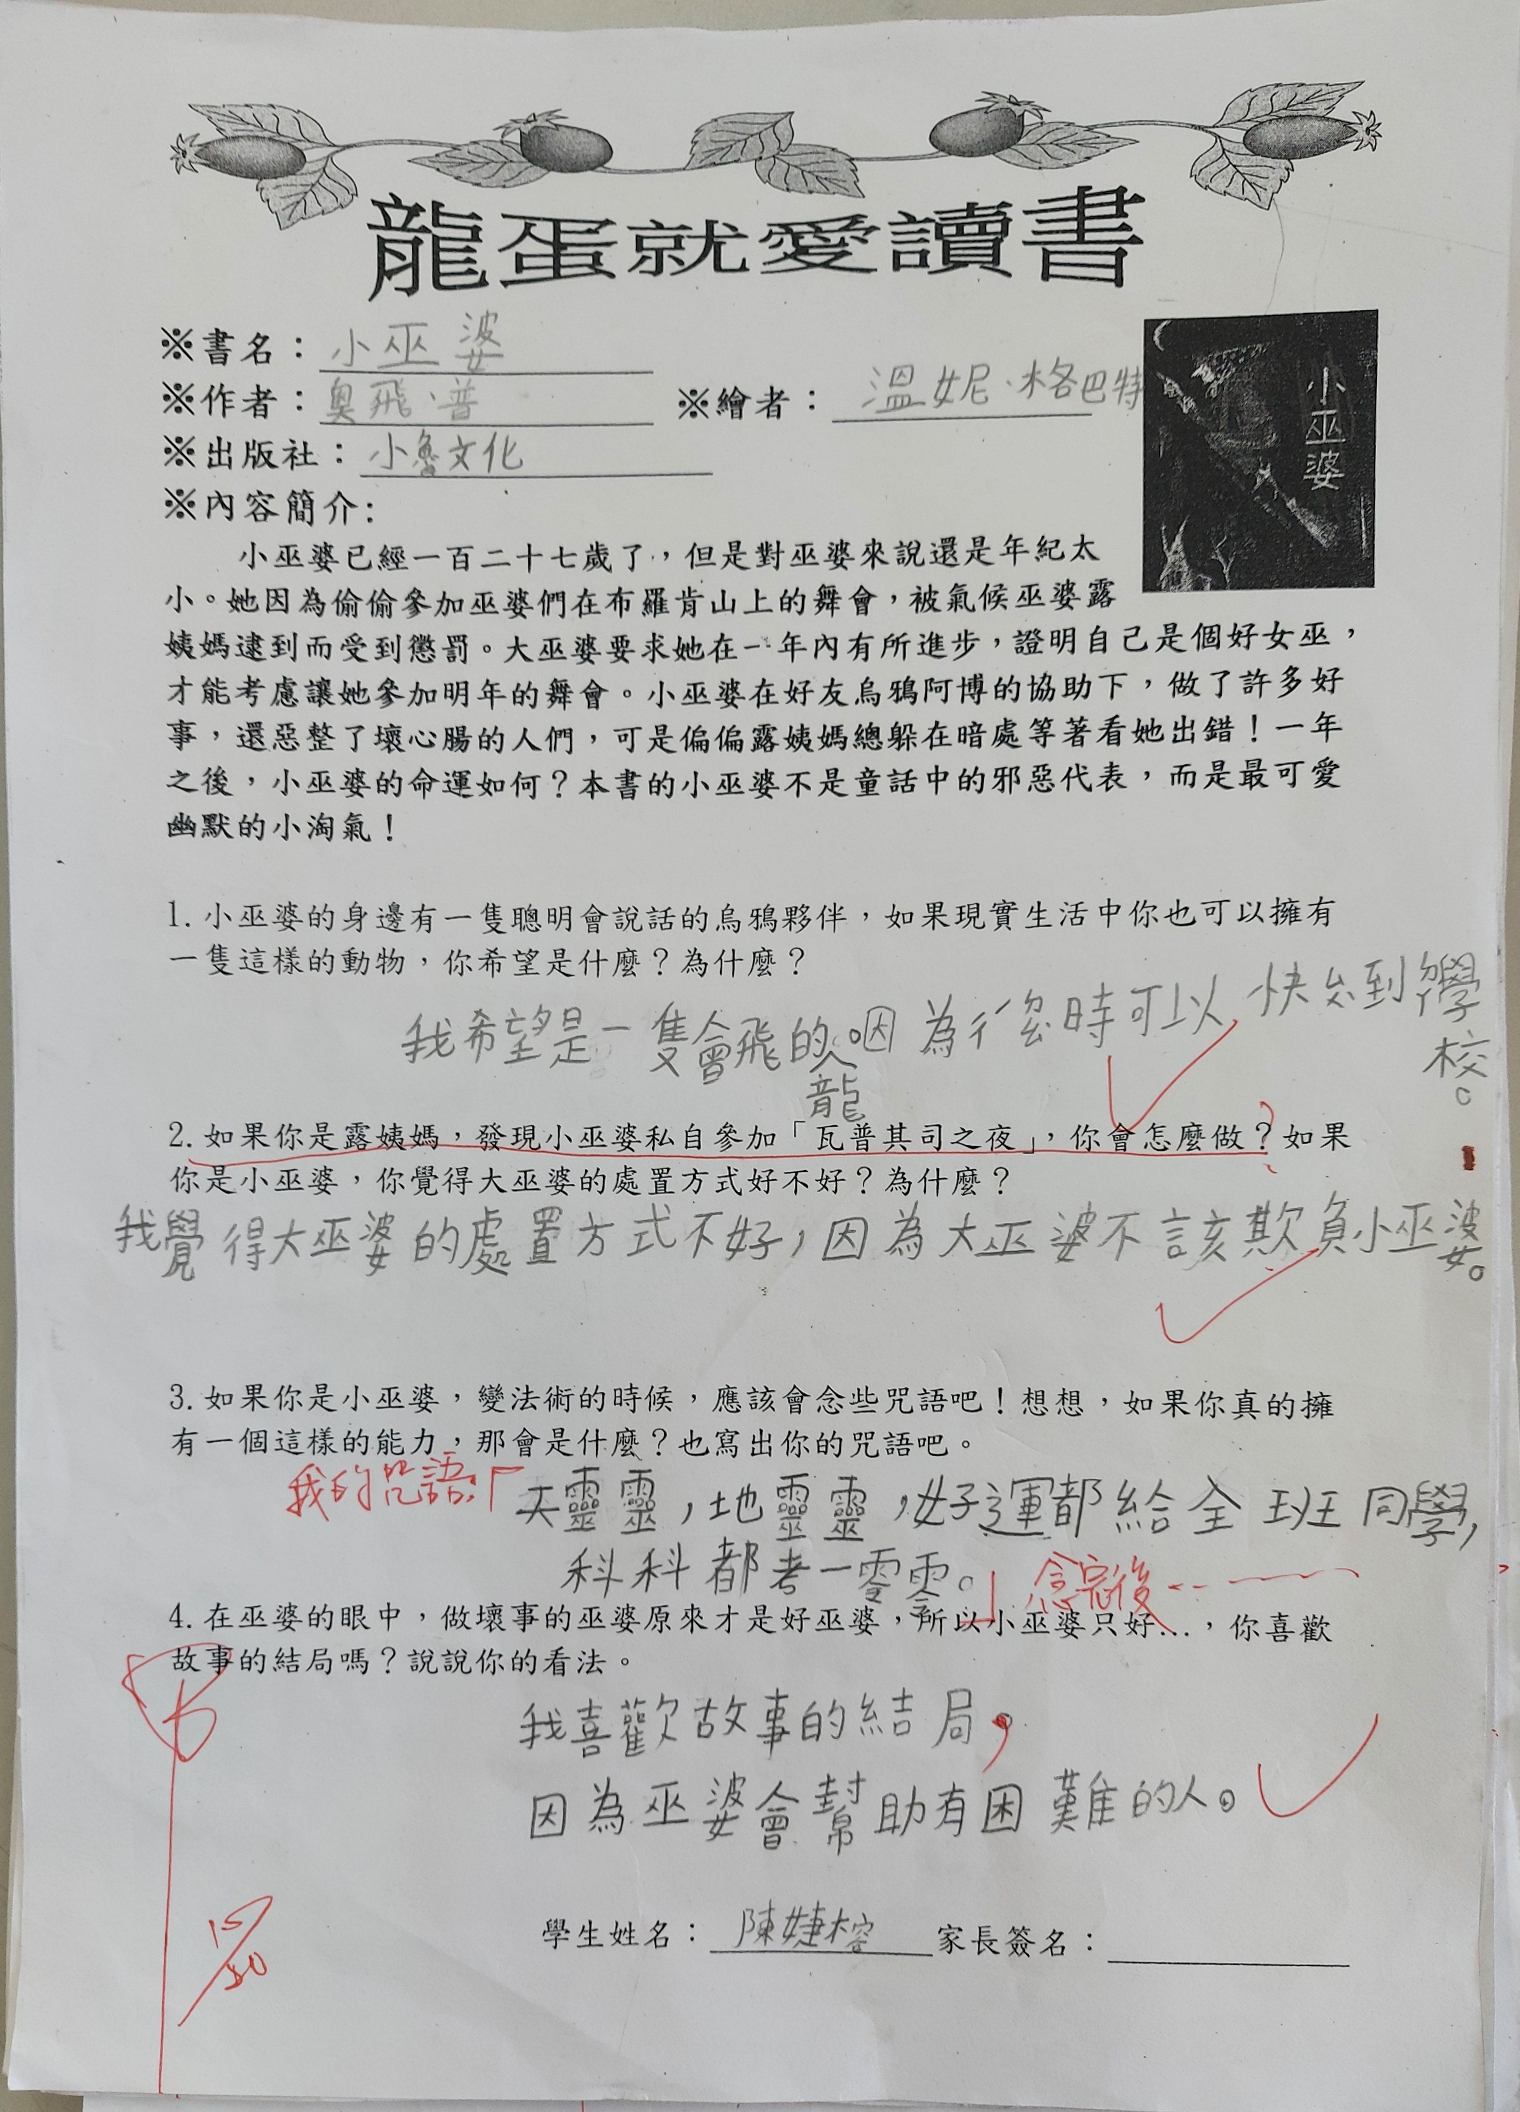 龍蛋就愛讀書
※書名：小巫婆
※作者：奧飛·普 ※繪者：溫妮·格巴特
※出版社：小魯文化
小巫婆
※內容簡介:
小巫婆已經一百二十七歲了，但是對巫婆來說還是年紀太
小。她因為偷偷參加巫婆們在布羅肯山上的舞會，被氣候巫婆露
姨媽逮到而受到懲罰。大巫婆要求她在一年內有所進步，證明自己是個好女巫，
才能考慮讓她參加明年的舞會。小巫婆在好友烏鴉阿博的協助下，做了許多好
事，還惡整了壞心腸的人們，可是偏偏露姨媽總躲在暗處等著看她出錯！一年
之後，小巫婆的命運如何？本書的小巫婆不是童話中的邪惡代表，而是最可愛
幽默的小淘氣！
1.小巫婆的身邊有一隻聰明會說話的烏鴉夥伴，如果現實生活中你也可以擁有
一隻這樣的動物，你希望是什麼？為什麼？
我希望是一隻會飛的龍。因為 時可以快 到學
校。
2.如果你是露姨媽，發現小巫婆私自參加「瓦普其司之夜」，你會怎麼做？如果
你是小巫婆，你覺得大巫婆的處置方式好不好？為什麼？
?
我覺得大巫婆的處置方式不好，因為大巫婆不該欺負小巫婆。
3.如果你是小巫婆，變法術的時候，應該會念些咒語吧！想想，如果你真的擁
有一個這樣的能力，那會是什麼？也寫出你的咒語吧。
我的咒語:「天靈靈，地靈靈，好運都給全班同學，
科科都考一零零。」念完後……
4.在巫婆的眼中，做壞事的巫婆原來才是好巫婆，所以小巫婆只好…，你喜歡
故事的結局嗎？說說你的看法。
我喜歡故事的結局，
因為巫婆會幫助有困難的人。
學生姓名：陳婕榕 家長簽名：